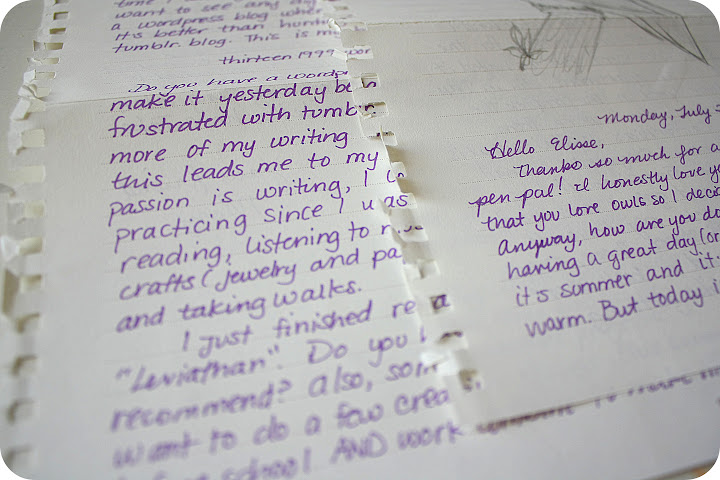 want to see any
a wordpress blog
It's better than
tumblr. blog. This is
thirteen 1999
Do you have a
make it yesterday
frustrated with
more of my writing
this leads me to my
passion is writing, I
practicing since I was
reading, listening to
crafts (jewelry and
and taking walks.
I just finished
"Leviathan". Do you
recommend? Also,
want to do a few
school AND work
Monday, July
Hello Elisse,
Thanks so much for
pen pal! I honestly love
that you love owls so I
anyway, how are you
having a great day (or
it's summer and
warm. But today